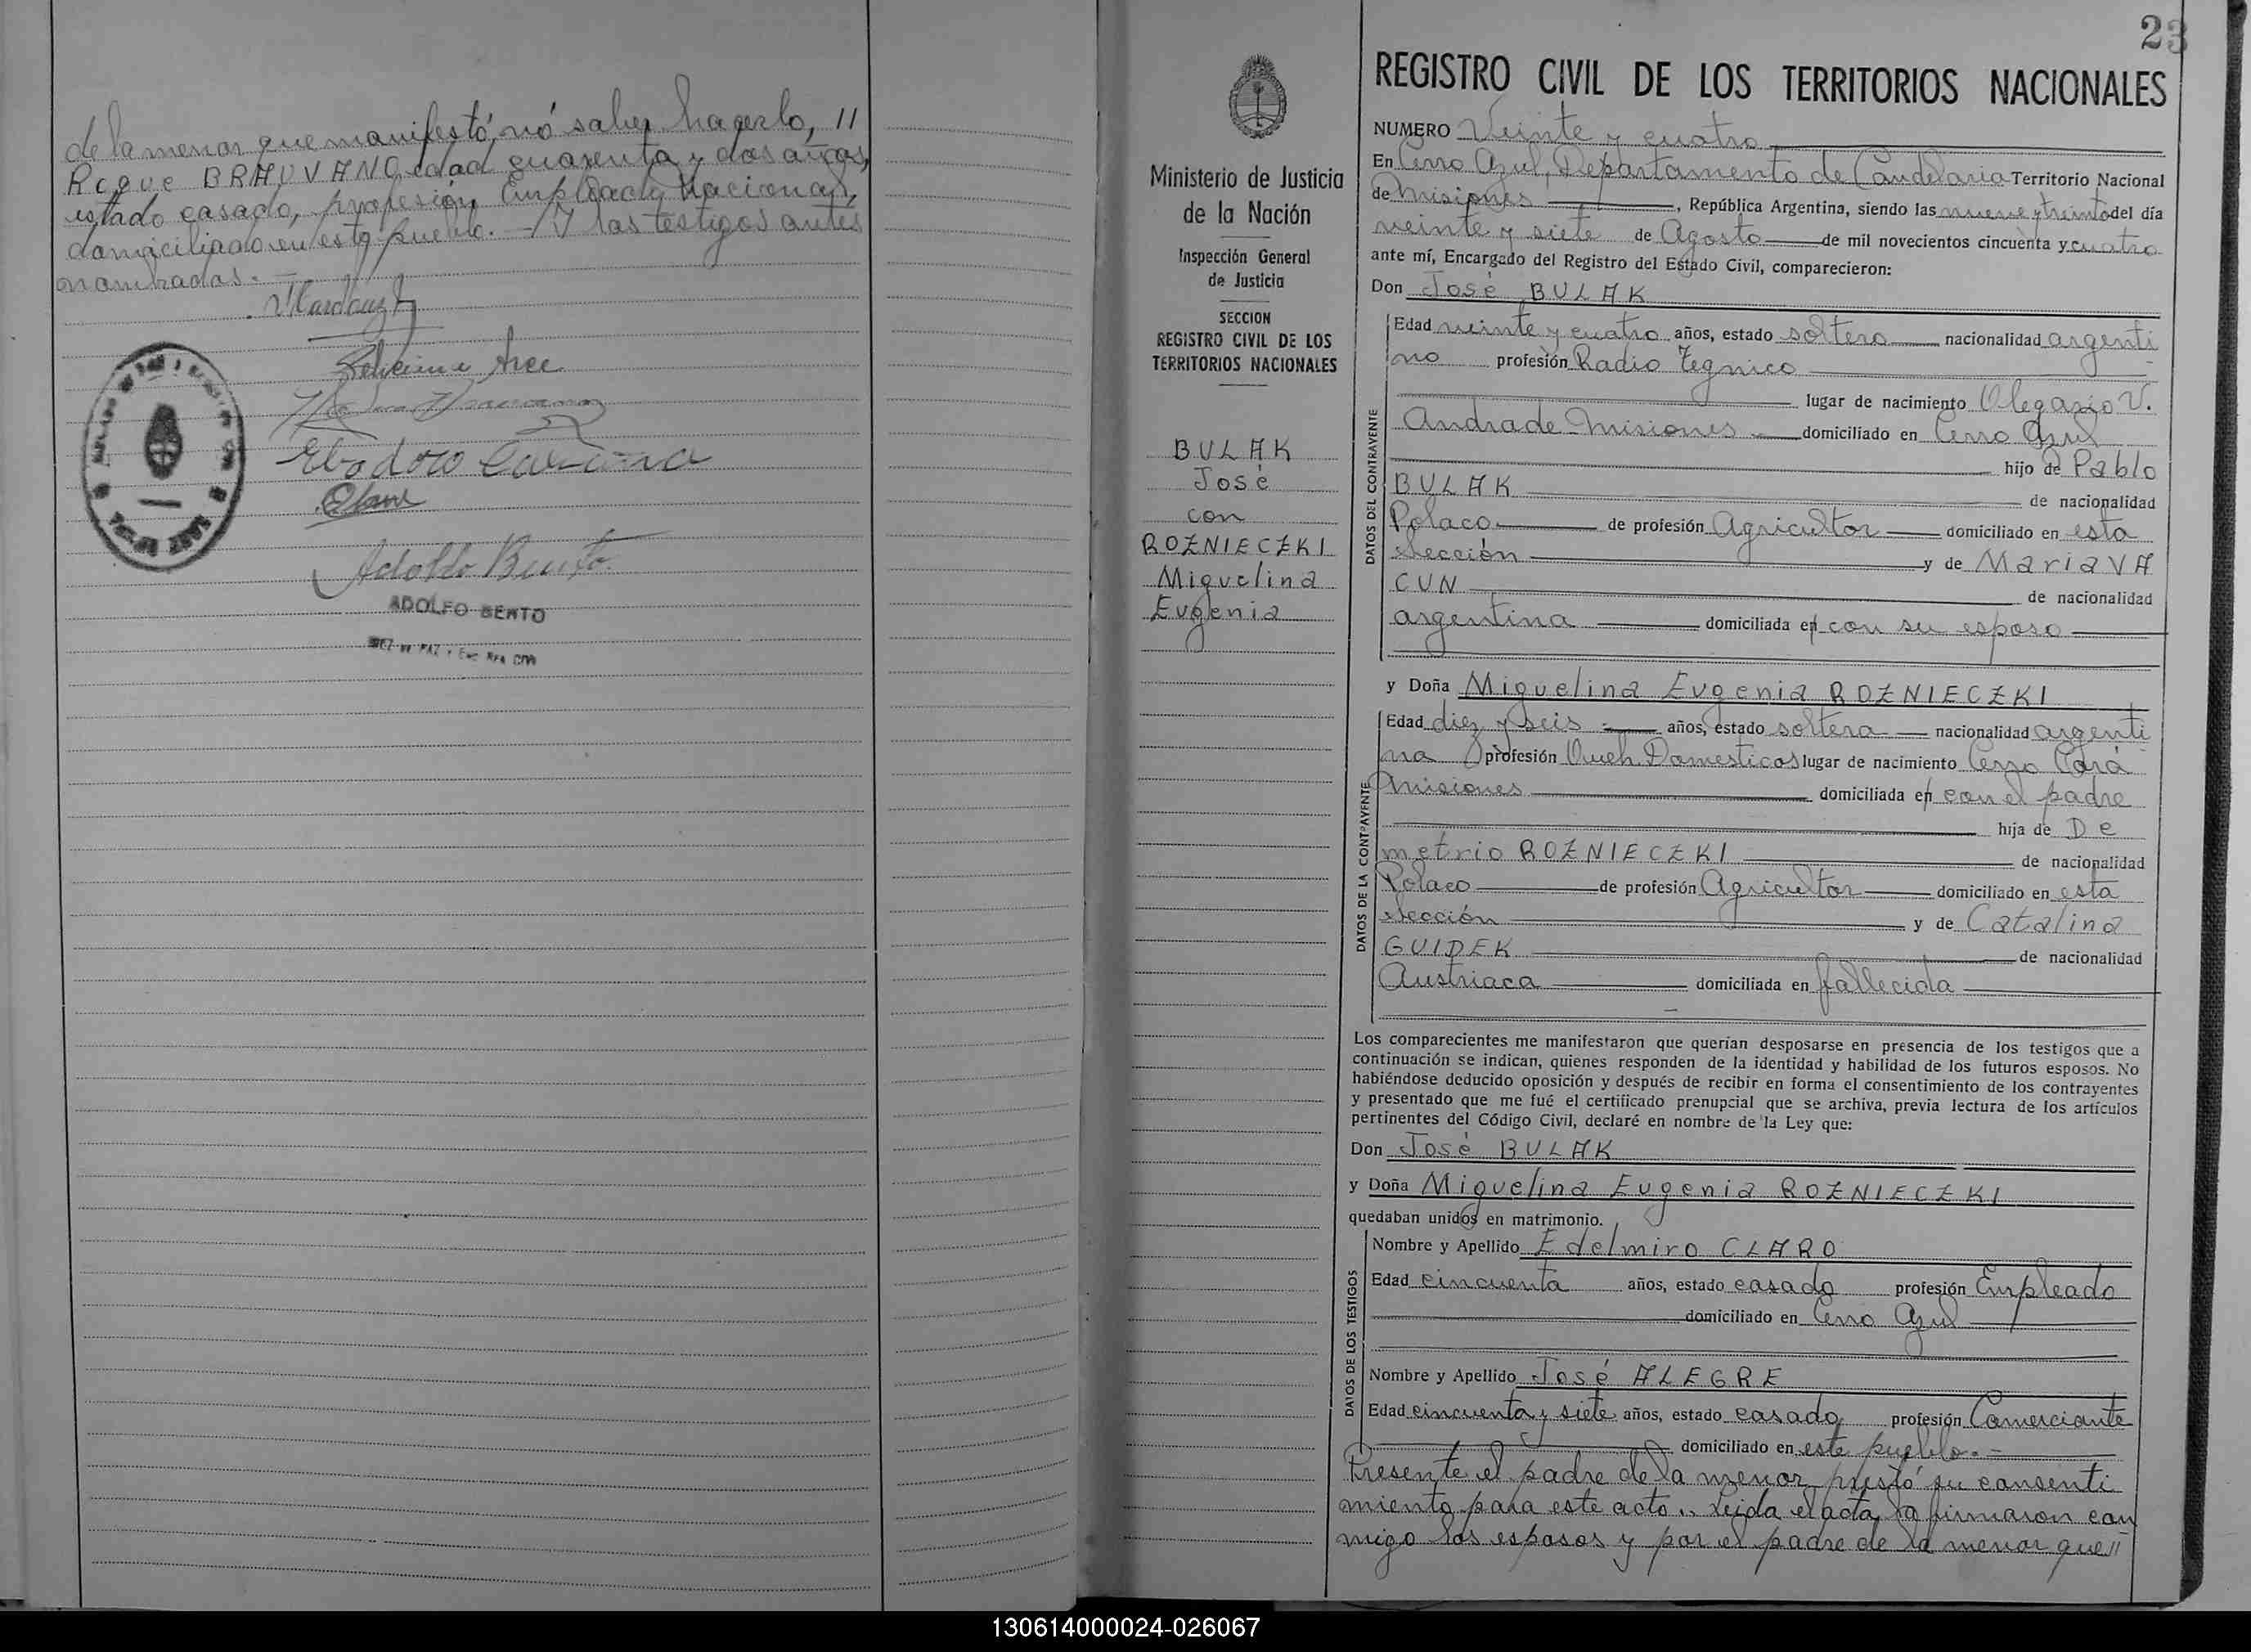 de la menor que manifestó, nó saber hacerlo, //
Roque BRAUVANO edad cuarenta y dos años,
estado casado, profesión Empleado Nacional,
domiciliado en este pueblo. - Y los testigos antes
nombrados. -
Adolfo Bento
ADOLFO BENTO
JUEZ DE PAZ Y ENC. REG. CIVIL
23
REGISTRO CIVIL DE LOS TERRITORIOS NACIONALES
Ministerio de Justicia
de la Nación
Inspección General
de Justicia
SECCION
REGISTRO CIVIL DE LOS
TERRITORIOS NACIONALES
BULAK
José
con
ROZNIECZKI
Miguelina
Eugenia
NUMERO Veinte y cuatro
En Cerro Azul, Departamento de Candelaria Territorio Nacional
de Misiones, República Argentina, siendo las nueve y treinta del día
veinte y siete de Agosto de mil novecientos cincuenta y cuatro
ante mí, Encargado del Registro del Estado Civil, comparecieron:
Don José BULAK
DATOS DEL CONTRAYENTE
Edad veinte y cuatro años, estado soltero nacionalidad argenti
no profesión Radio Tegnico
lugar de nacimiento Olegario V.
Andrade - Misiones domiciliado en Cerro Azul
hijo de Pablo
BULAK de nacionalidad
Polaco de profesión Agricultor domiciliado en esta
sección y de María VA
CUN de nacionalidad
argentina domiciliada en con su esposo
y Doña Miguelina Eugenia ROZNIECZKI
DATOS DE LA CONTRAYENTE
Edad diez y seis años, estado soltera nacionalidad argenti
na profesión Queh. Domesticos lugar de nacimiento Cerro Corá
Misiones domiciliada en con el padre
hija de De
metrio ROZNIECZKI de nacionalidad
Polaco de profesión Agricultor domiciliado en esta
sección y de Catalina
GUIDEK de nacionalidad
Austriaca domiciliada en fallecida
Los comparecientes me manifestaron que querían desposarse en presencia de los testigos que a
continuación se indican, quienes responden de la identidad y habilidad de los futuros esposos. No
habiéndose deducido oposición y después de recibir en forma el consentimiento de los contrayentes
y presentado que me fué el certificado prenupcial que se archiva, previa lectura de los artículos
pertinentes del Código Civil, declaré en nombre de la Ley que:
Don José BULAK
y Doña Miguelina Eugenia ROZNIECZKI
quedaban unidos en matrimonio.
DATOS DE LOS TESTIGOS
Nombre y Apellido Edelmiro CLARO
Edad cincuenta años, estado casado profesión Empleado
domiciliado en Cerro Azul
Nombre y Apellido José ALEGRE
Edad cincuenta y siete años, estado casado profesión Comerciante
domiciliado en este pueblo. -
Presente el padre de la menor prestó su consenti
miento para este acto.. Leida el acta la firmaron con
migo los esposos y por el padre de la menor que //
130614000024-026067